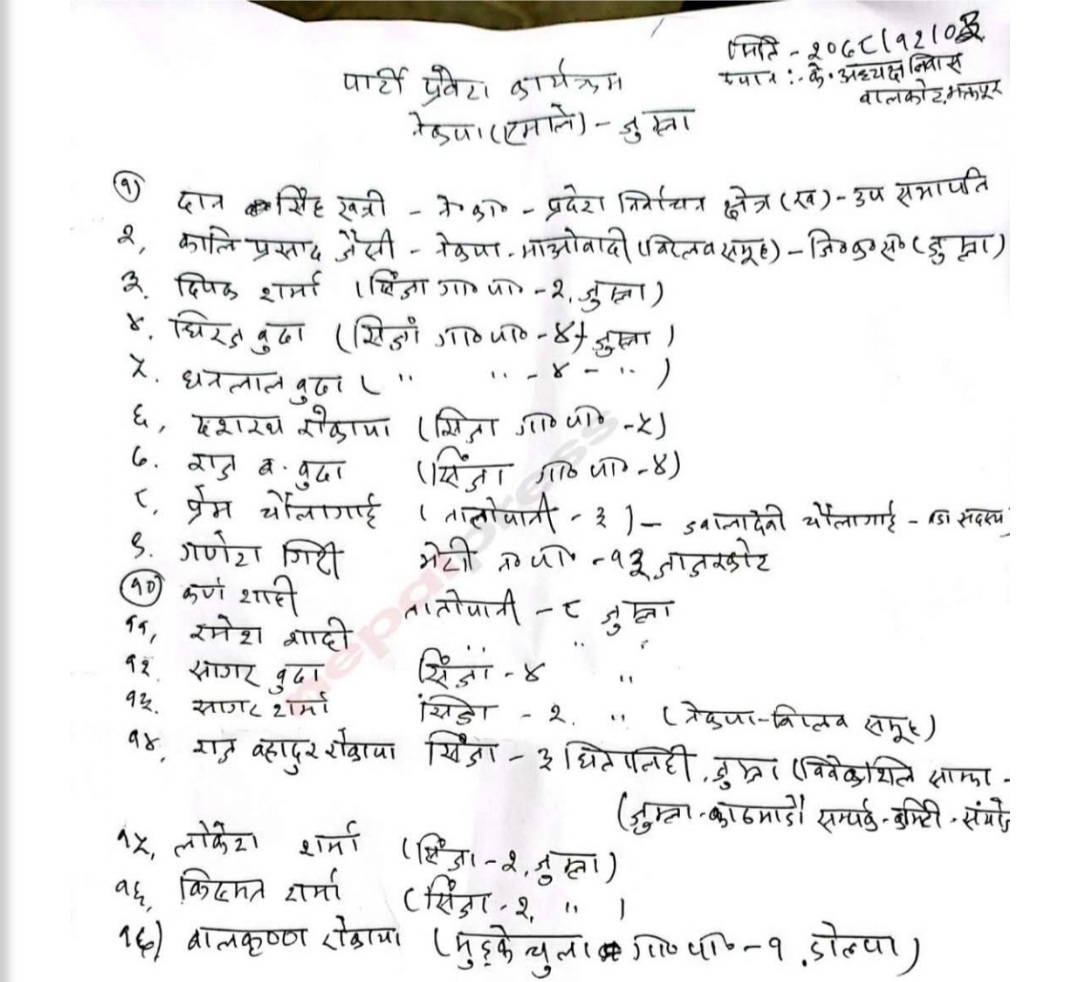 मिति - २०७८।१२।०३
स्थान :- के. अध्यक्ष निवास
बालकोट, भक्तपुर
पार्टी प्रवेश कार्यक्रम
नेकपा (एमाले) - जुम्ला
१) दान सिंह खत्री - ने० का० - प्रदेश निर्वाचन क्षेत्र (ख) - उप सभापति
२, कालि प्रसाद जैसी - नेकपा. माओवादी (विप्लव समूह) - जि०क०स० (जुम्ला)
३. दिपक शर्मा (सिंजा गा० पा० - २, जुम्ला)
४. धिरज बुढा (सिंजा गा० पा० - ४, जुम्ला)
५. धनलाल बुढा ( " " - ४ - " )
६, दशरथ रोकाया (सिंजा गा० पा० - ५)
७. राजु ब. बुढा (सिंजा गा० पा० - ४)
८, प्रेम चौलागाई (तातोपानी - ३) - चौलागाई - वडा सदस्य
९. गणेश गिरी भेरी न० पा० - १३ जाजरकोट
१०) कर्ण शाही तातोपानी - ८ जुम्ला
११, रमेश शाही " " "
१२. सागर बुढा सिंजा - ४ "
१३. सागर शर्मा सिंजा - २. " (नेकपा - विप्लव समूह)
१४, राजु बहादुर रोकाया सिंजा - ३ जुम्ला (विवेकशिल साझा -
(जुम्ला - काठमाडौं सम्पर्क - कमिटी -
१५, लोकेश शर्मा (सिंजा - २, जुम्ला)
१६, किस्मत शर्मा (सिंजा - २, " )
१७) बालकृष्ण रोकाया (मुड्केचुला गा० पा० - १, डोल्पा)
nepalpress